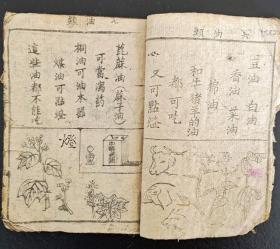 油類
豆油 白油
香油 菜油
棉油
和牛猪羊的油
都可吃
又可點燈
九 油類
萞蔴油 蘇子油
可當瀉药
桐油可油木器
煤油可點燈
這些油都不能吃
燈